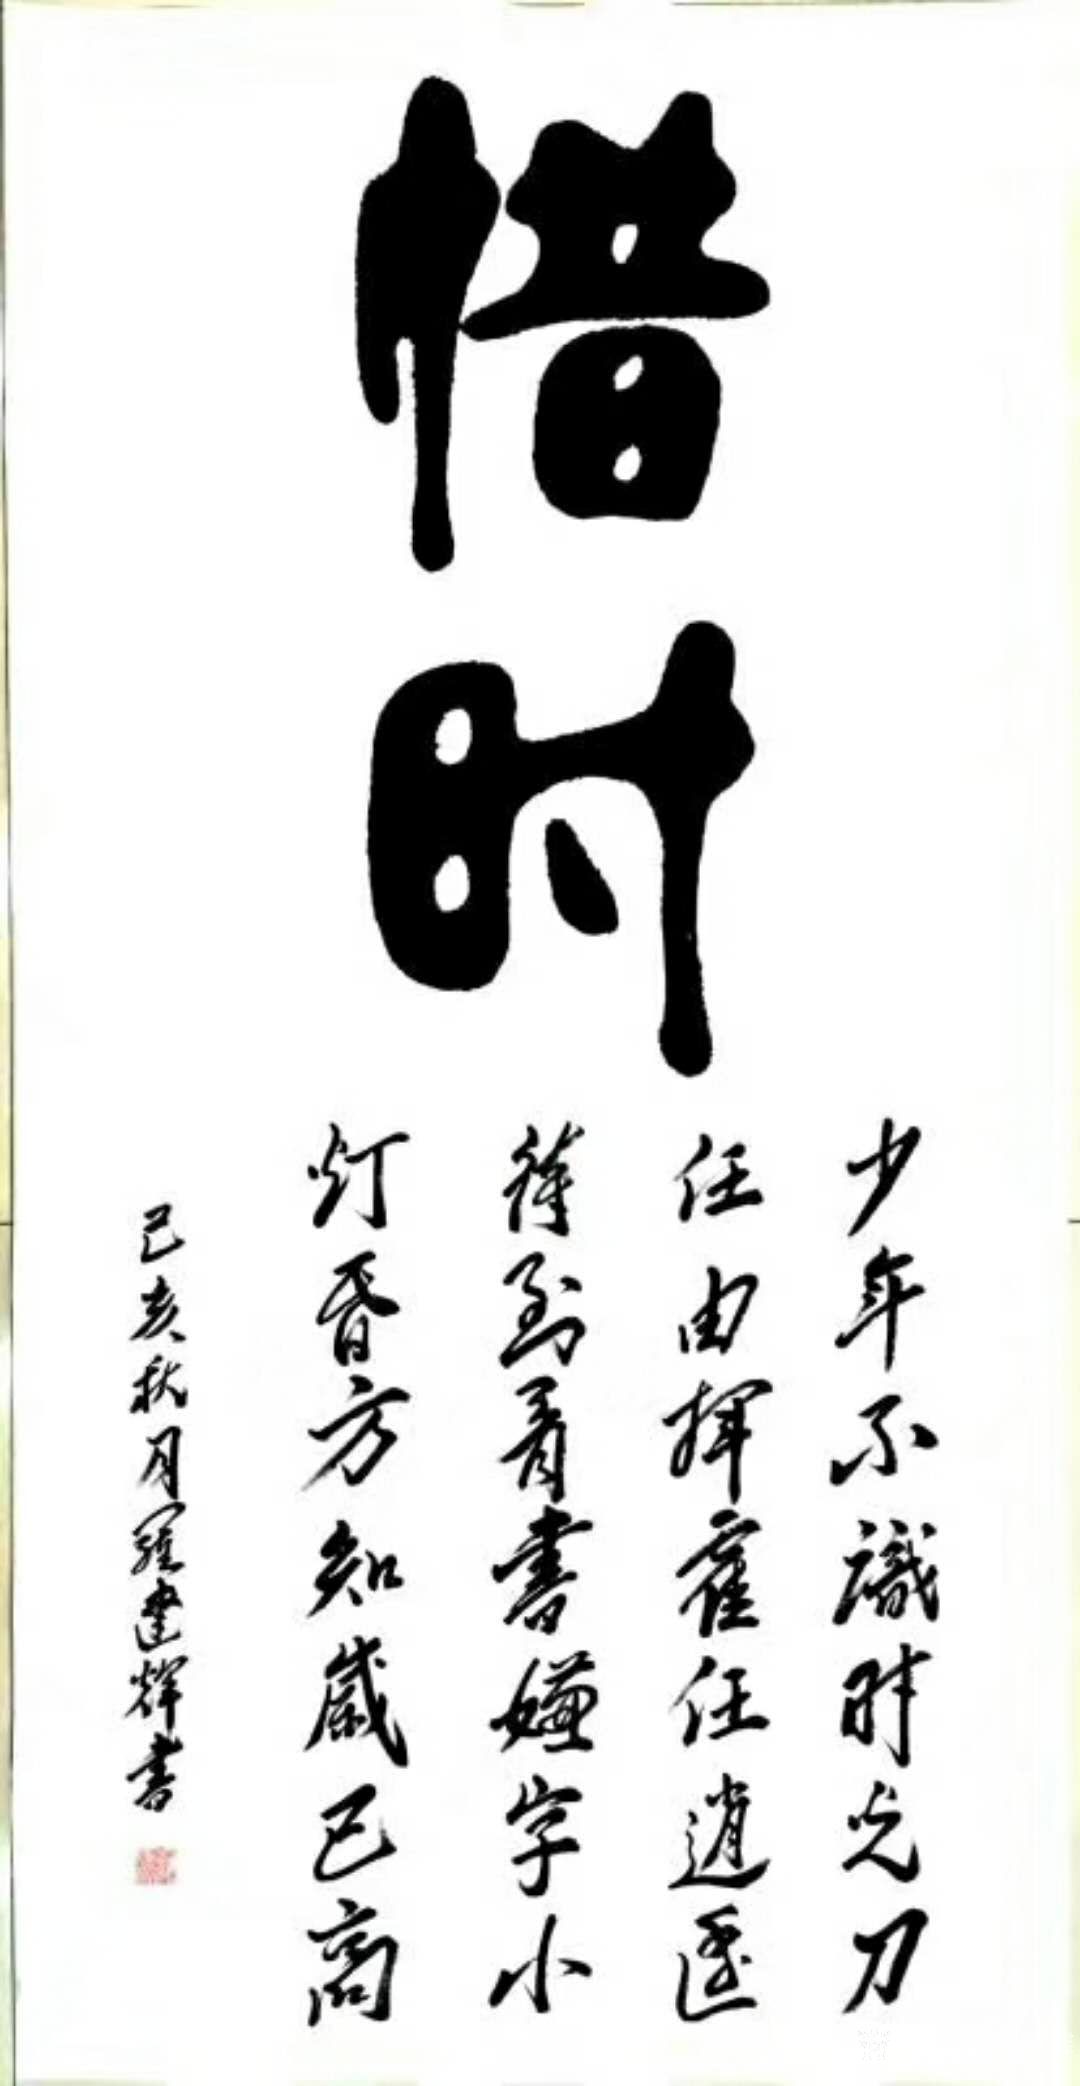 惜时
少年不識時光刀
任由揮霍任逍遥
待到看書嫌字小
灯昏方知歲已高
己亥秋月羅建輝書